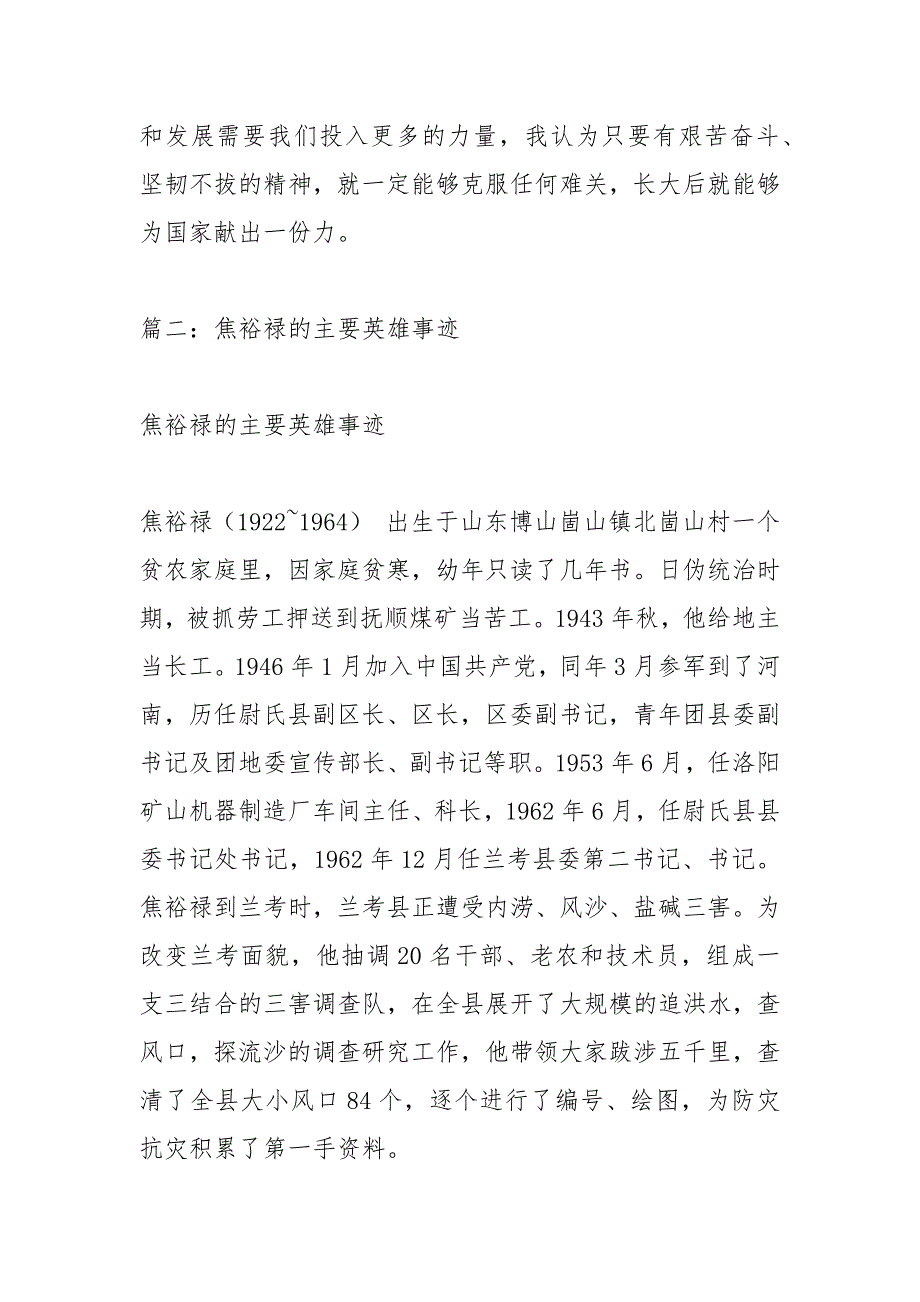 和发展需要我们投入更多的力量，我认为只要有艰苦奋斗、
坚韧不拔的精神，就一定能够克服任何难关，长大后就能够
为国家献出一份力。
篇二：焦裕禄的主要英雄事迹
焦裕禄的主要英雄事迹
焦裕禄（1922~1964） 出生于山东博山崮山镇北崮山村一个
贫农家庭里，因家庭贫寒，幼年只读了几年书。日伪统治时
期，被抓劳工押送到抚顺煤矿当苦工。1943 年秋，他给地主
当长工。1946 年 1 月加入中国共产党，同年 3 月参军到了河
南，历任尉氏县副区长、区长，区委副书记，青年团县委副
书记及团地委宣传部长、副书记等职。1953 年 6 月，任洛阳
矿山机器制造厂车间主任、科长，1962 年 6 月，任尉氏县县
委书记处书记，1962 年 12 月任兰考县委第二书记、书记。
焦裕禄到兰考时，兰考县正遭受内涝、风沙、盐碱三害。为
改变兰考面貌，他抽调 20 名干部、老农和技术员，组成一
支三结合的三害调查队，在全县展开了大规模的追洪水，查
风口，探流沙的调查研究工作，他带领大家跋涉五千里，查
清了全县大小风口 84 个，逐个进行了编号、绘图，为防灾
抗灾积累了第一手资料。